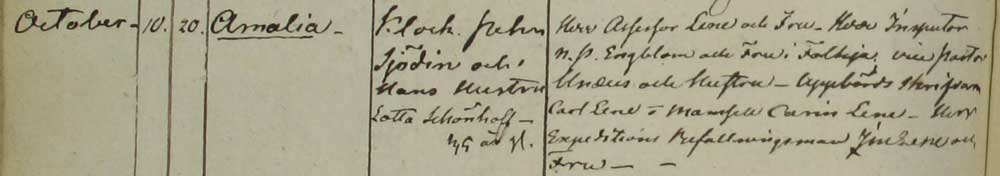 October - 10. 20. Amalia -
Klock. Petter
Sjödin och
Hans Hustru
Lotta Schönhoff -
45 år gl.
Herr Assessor Lene och Fru - Herr Inspector
N. P. Engblom och Fru i vice Pastor
och Hustru - Uppbörds Skrifvaren
Carl Lene - Mamsell Carin Lene - Herr
Expeditions Befallningsman Lene och
Fru - -